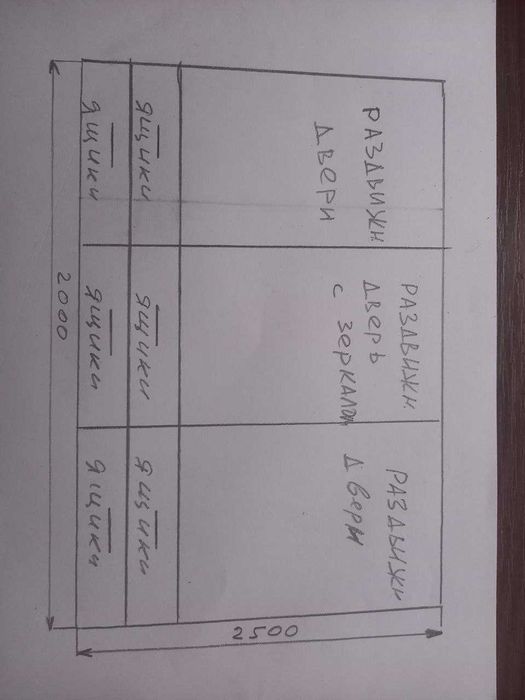 РАЗДВИЖН
ДВЕРИ
РАЗДВИЖН.
ДВЕРЬ
С ЗЕРКАЛОМ
РАЗДВИЖН
ДВЕРИ
ЯЩИКИ
ЯЩИКИ
ЯЩИКИ
ЯЩИКИ
ЯЩИКИ
ЯЩИКИ
2000
2500